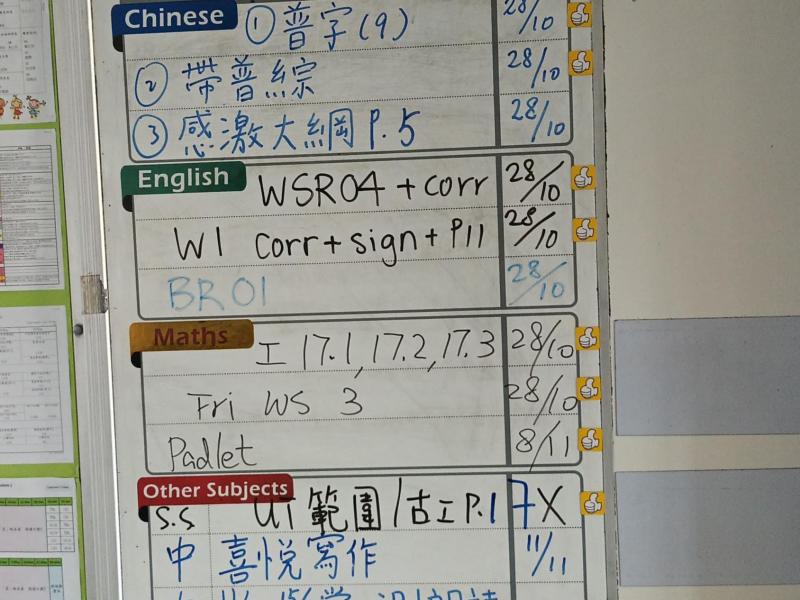 Chinese ① 普字(9) 28/10
② 帶普綜 28/10
③ 感激大綱 P.5 28/10
English WSR04 + corr 28/10
W1 corr + sign + P11 28/10
BR01 28/10
Maths 工 17.1, 17.2, 17.3 28/10
Fri WS 3 28/10
Padlet 8/11
Other Subjects
S.S UT 範圍/古工P.17 X
中 喜悅寫作 11/11